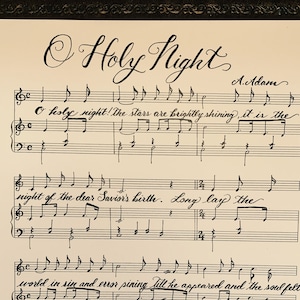 O Holy Night
A. Adam
O holy night! The stars are brightly shining, it is the
night of the dear Savior's birth. Long lay the
world in sin and error pining Till he appeared and the soul felt